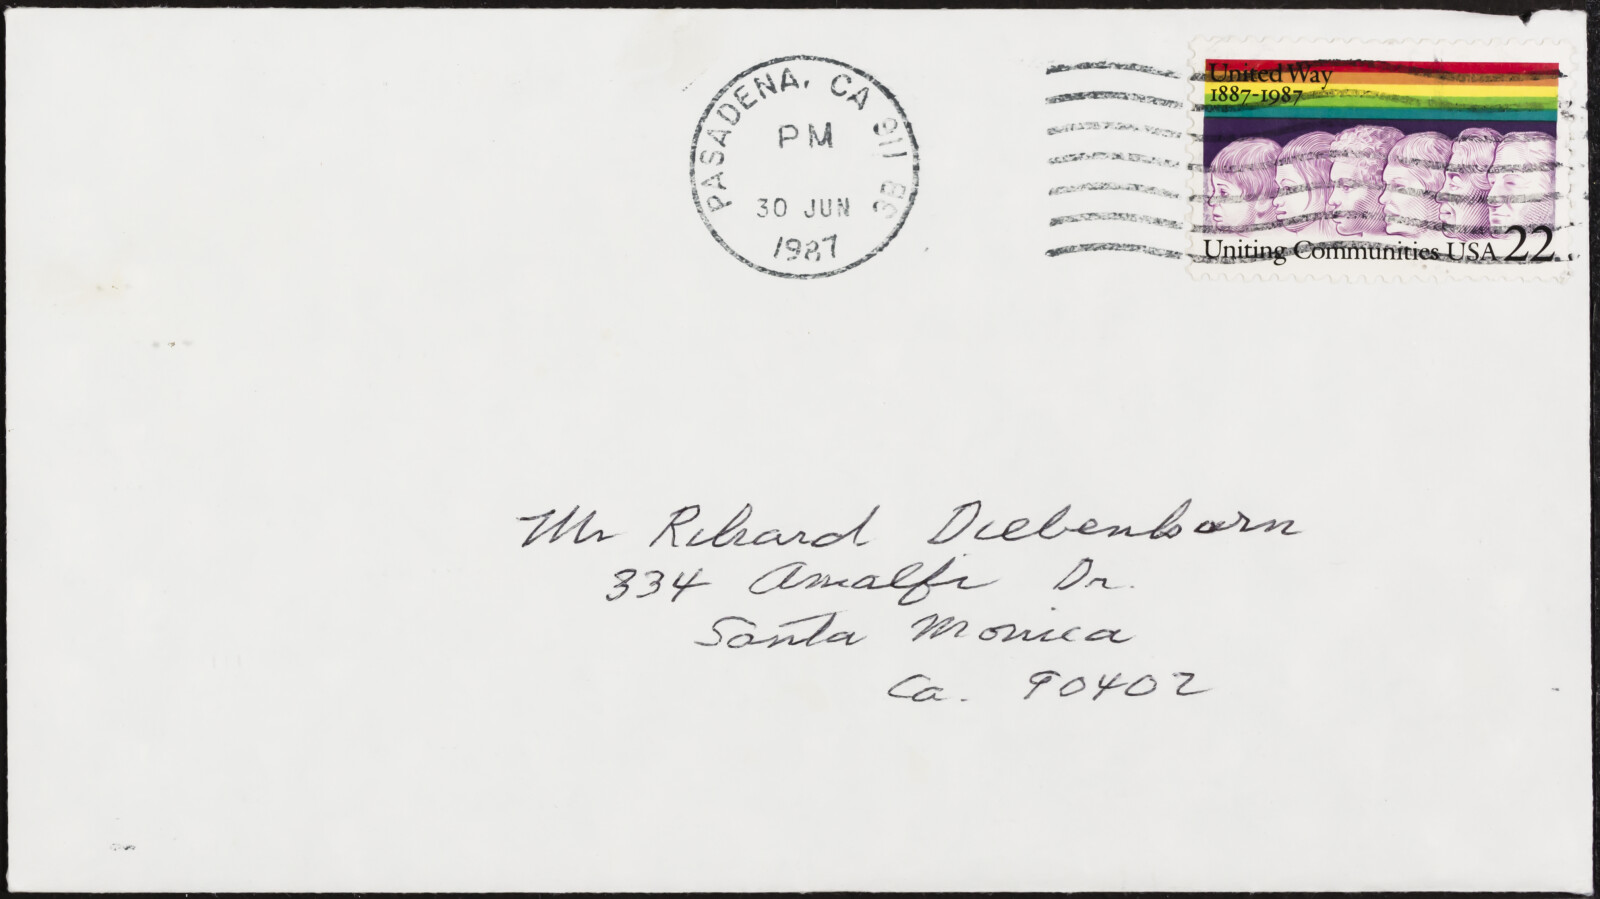 PASADENA, CA 911 3B
PM
30 JUN
1987
United Way
1887-1987
Uniting Communities USA 22
Mr Richard Diebenkorn
334 Amalfi Dr.
Santa Monica
Ca. 90402